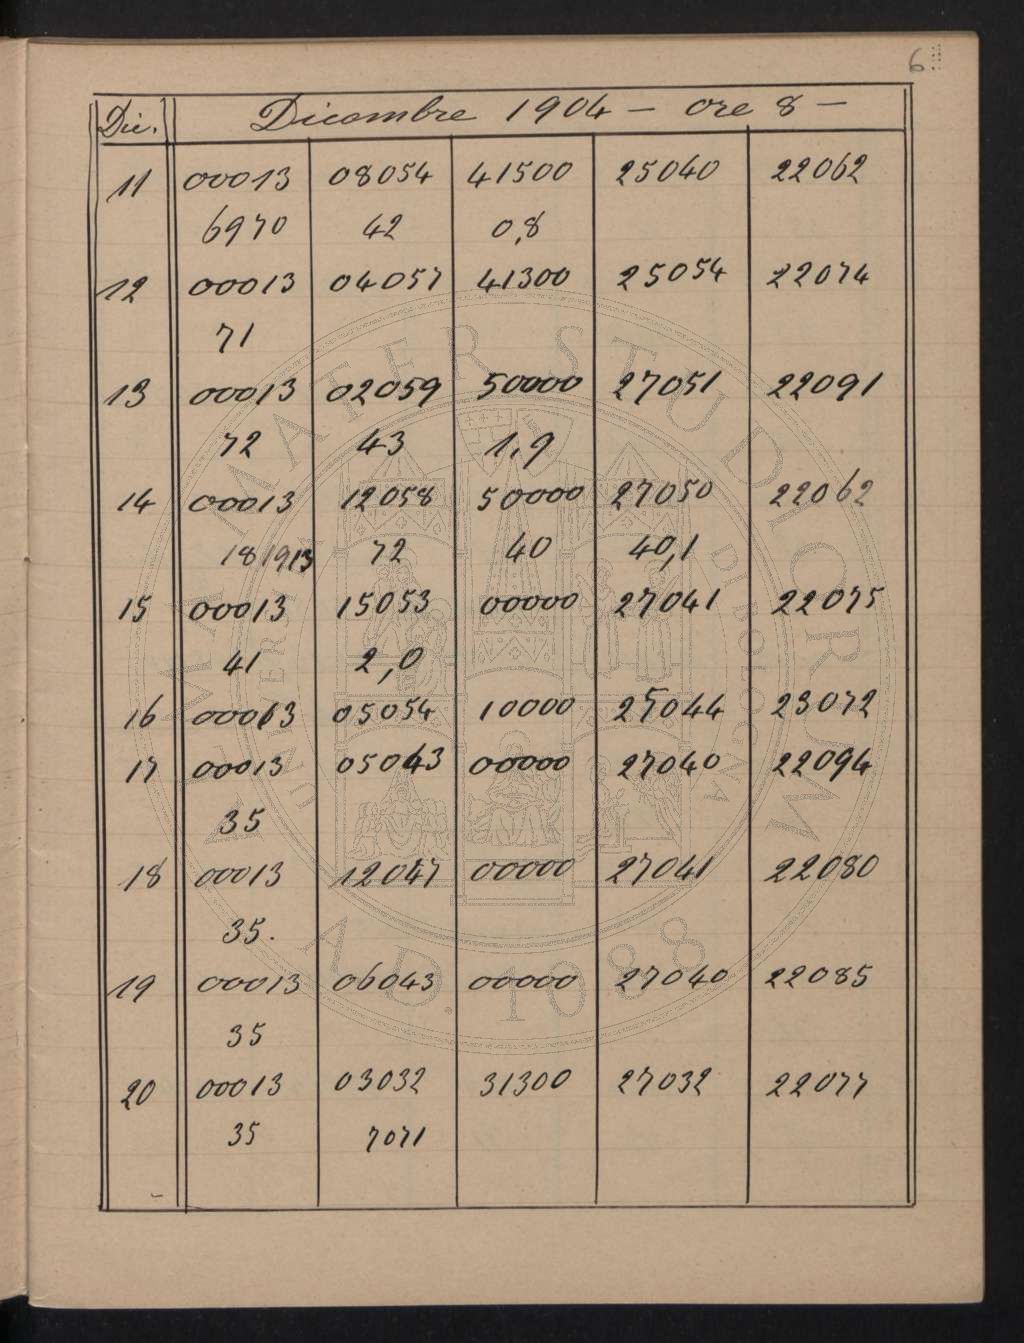 6
Dic. Dicembre 1904 — ore 8 —
11 00013 08054 41500 25040 22062
6970 42 0,8
12 00013 04057 41300 25054 22074
71
13 00013 02059 50000 27051 22091
72 43 1,9
14 00013 12058 50000 27050 22062
181913 72 40 40,1
15 00013 15053 00000 27041 22075
41 2,0
16 00013 05054 10000 25044 23072
17 00013 05043 00000 27040 22094
35
18 00013 12047 00000 27041 22080
35.
19 00013 06043 00000 27040 22085
35
20 00013 03032 31300 27032 22077
35 7071
ALMA MATER STUDIORUM
A.D. 1088